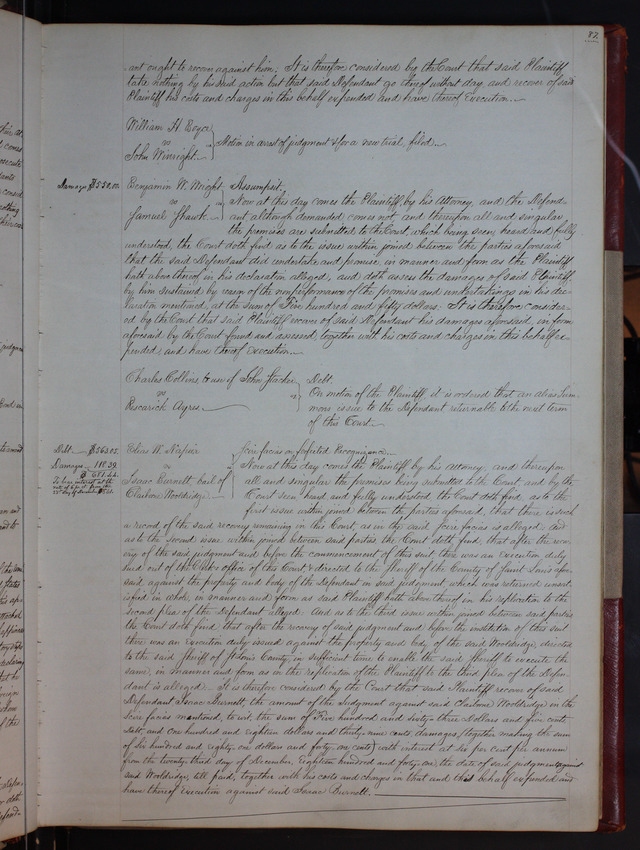 87.
ant ought to recover against him. It is therefore considered by the Court that said Plaintiff
take nothing by his said action but that said Defendant go thereof without day, and recover of said
Plaintiff his costs and charges in this behalf expended and have thereof Execution.
William H. Boyce
vs
John Winright.
Motion in arrest of judgment & for a new trial, filed.
Damages $550.00.
Benjamin W. Wright, Assumpsit.
vs
Samuel Shawk.
Now at this day comes the Plaintiff, by his Attorney, and the Defend
ant although demanded comes not, and thereupon all and singular
the premises are submitted to the Court, which being seen, heard and fully
understood, the Court doth find as to the issue within joined between the parties aforesaid
that the said Defendant did undertake and promise, in manner and form as the Plaintiff
hath above thereof in his declaration alleged, and doth assess the damages of said Plaintiff,
by him sustained by reason of the nonperformance of the promises and undertakings in his dec
laration mentioned, at the sum of Five hundred and fifty dollars. It is therefore consider-
ed by the Court that said Plaintiff recover of said Defendant his damages aforesaid, in form
aforesaid by the Court found and assessed, together with his costs and charges in this behalf ex
pended, and have thereof Execution.
Charles Collins to use of John Stacker
vs
Ayres.
Debt.
On motion of the Plaintiff it is ordered that an alias Sum
mons issue to the Defendant returnable to the next term
of this Court.
Debt. $563.05.
Damages 118.39.
$ 681.44.
To bear interest at the
rate of 6 per ct from the
23d day of December 1841.
Elias W. Napier
vs
Isaac Burnett, bail of
Claiborne Wooldridge.
Scire facias on forfeited Recognizance.
Now at this day comes the Plaintiff by his Attorney, and thereupon
all and singular the premises being submitted to the Court, and by the
Court seen, heard and fully understood the Court doth find, as to the
first issue within joined between the parties aforesaid, that there is such
a record of the said recovery remaining in this Court, as in the said Scire facias is alleged. And
as to the second issue within joined between said parties the Court doth find, that after the reco
very of the said judgment and before the commencement of this suit there was an execution duly
sued out of the Clerks office of this Court & directed to the Sheriff of the County of Saint Louis afore
said, against the property and body of the Defendant in said judgment, which was returned unsat
isfied in whole, in manner and form as said Plaintiff hath above thereof in his replication to the
second plea of the Defendant alleged. And as to the third issue within joined between said parties
the Court doth find, that after the recovery of said judgment and before the institution of this suit
there was an execution duly issued against the property and body of the said Wooldridge, directed
to the said Sheriff of St Louis County, in sufficient time to enable the said Sheriff to execute the
same, in manner and form as in the replication of the Plaintiff to the third plea of the Defen
dant is alleged. It is therefore considered by the Court that said Plaintiff recover of said
Defendant Isaac Burnett, the amount of the Judgment against said Claiborne Wooldridge in the
Scire facias mentioned, to wit, the sum of Five hundred and sixty three Dollars and five cents
debt, and one hundred and eighteen dollars and thirty nine cents damages, (together making the sum
of Six hundred and eighty one dollars and forty four cents) with interest at six per cent per annum
from the twenty third day of December, Eighteen hundred and forty one, the date of said judgment against
said Wooldridge, till paid, together with his costs and charges in that and this behalf expended and
have thereof Execution against said Isaac Burnett.